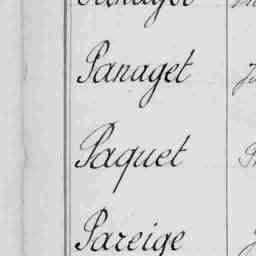 Panaget
Paquet
Pareige